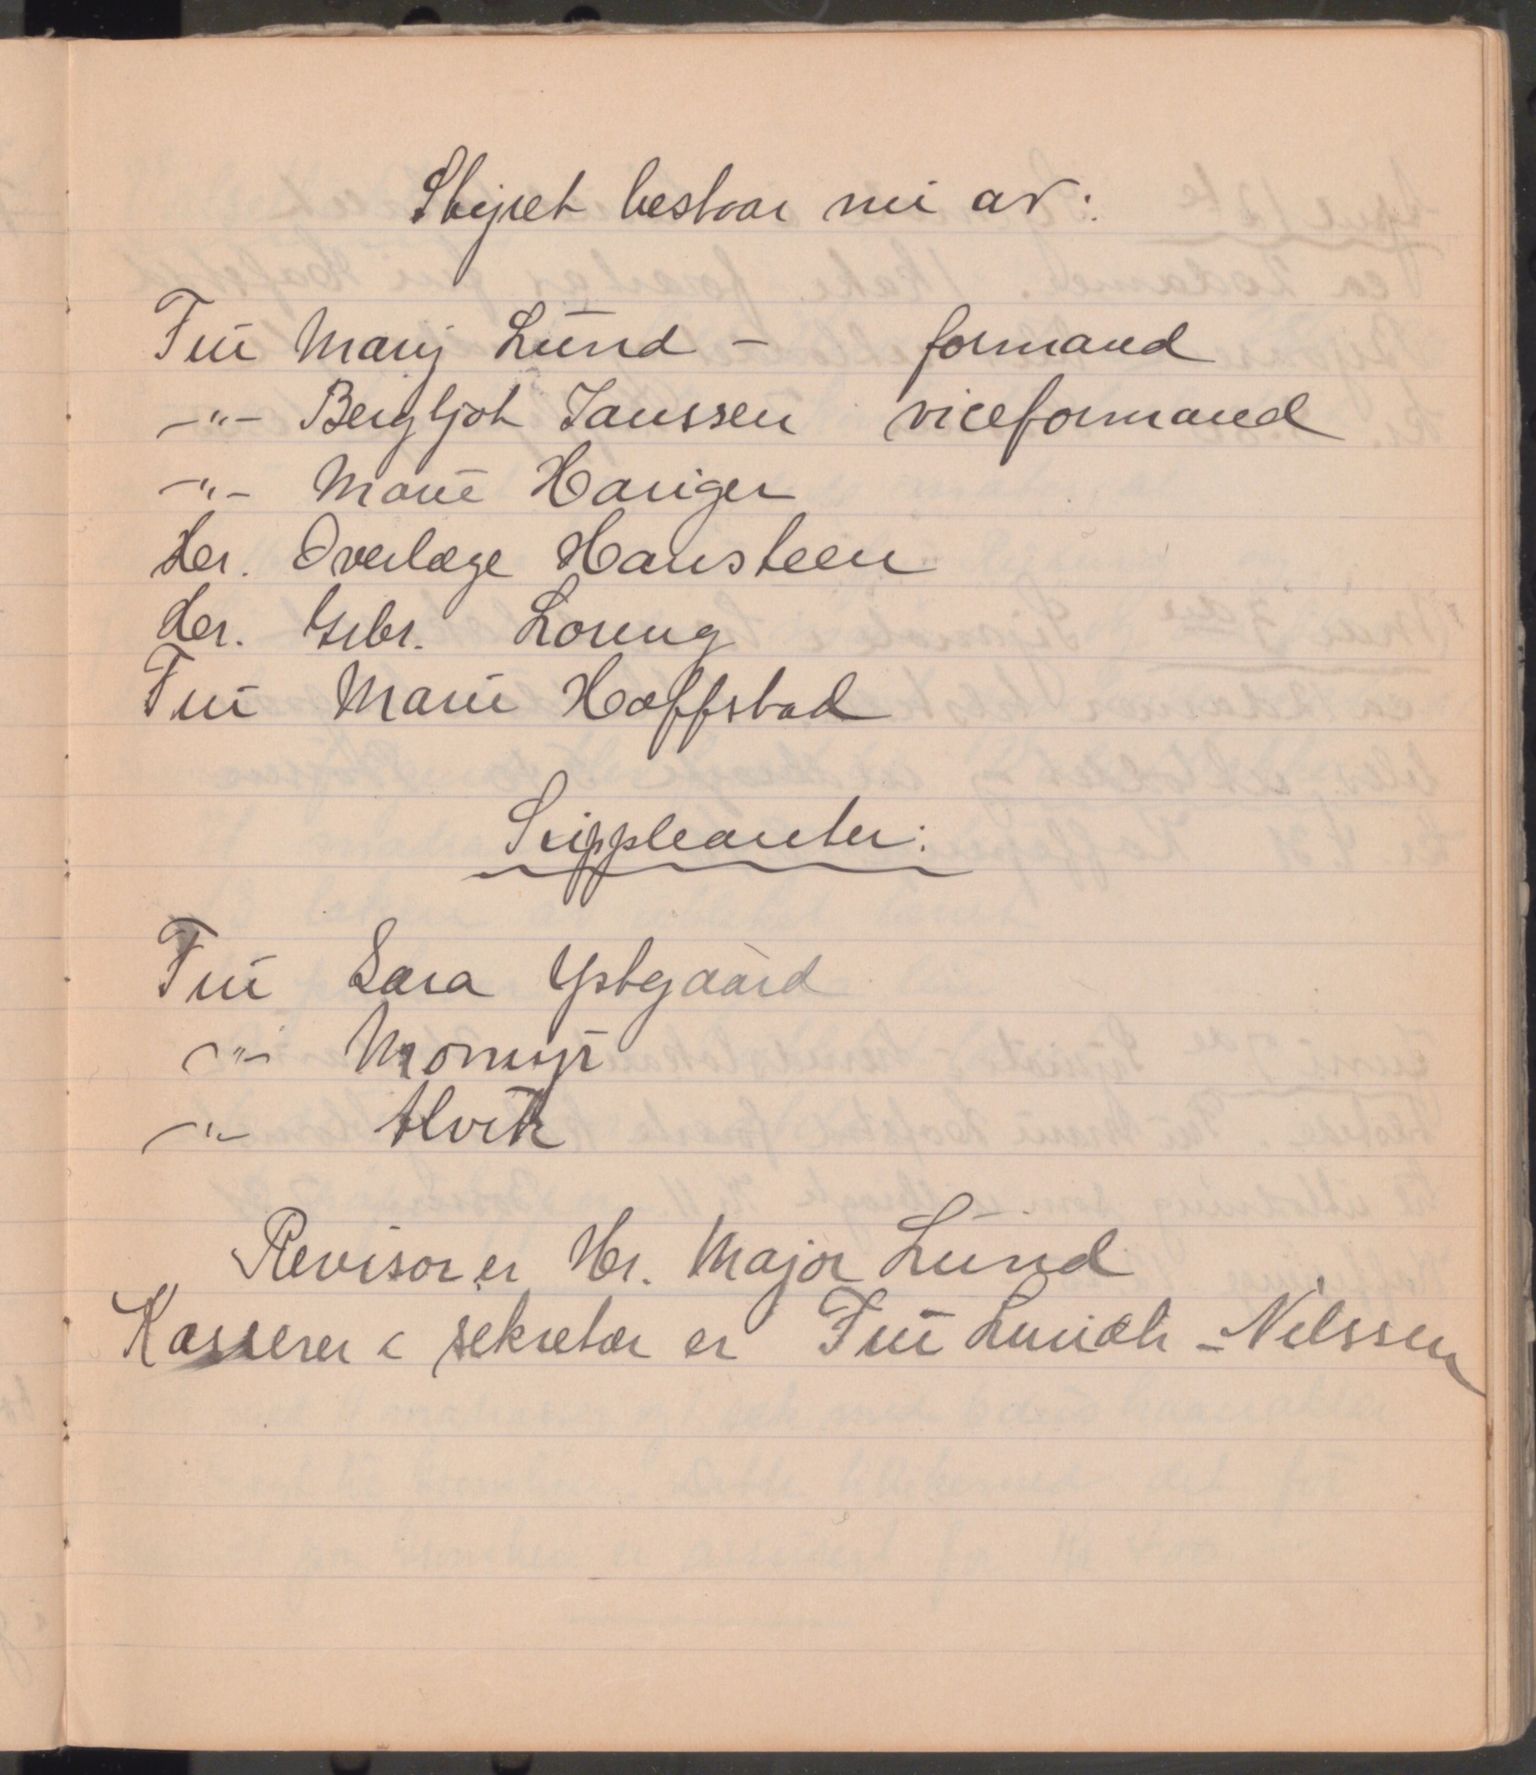 Styret bestaar nu av:
Fru Mary Lund - formand
-"- Bergljot Janssen viceformand
-"- Marie Hariger
Hr. Overlæge Hansteen
Hr. Grbr. Loreng
Fru Marie Hoffstad
Suppleanter:
Fru Sara Ystgaard
-"- Momyr
-"- Alvik
Revisor er Hr. Major Lund
Kasserer & sekretær er Fru Lundh - Nilssen